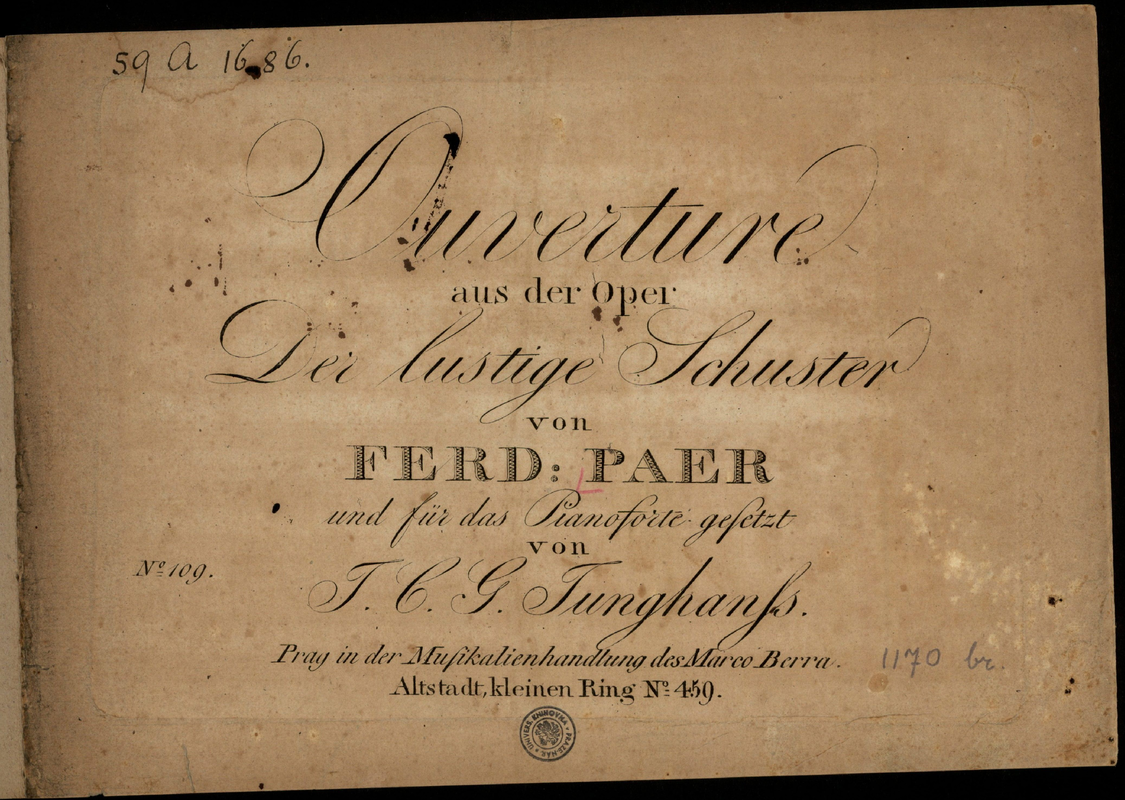 59 A 1686.
Ouverture
aus der Oper
Der lustige Schuster
von
FERD: PAER
und für das Pianoforte geſetzt
von
J. C. G. Junghanſs.
Nº 109.
Prag in der Muſikalienhandlung des Marco Berra.
1170 br.
Altstadt, kleinen Ring Nº 459.
UNIVERS. KNIHOVNA
PRAŽSKÁ